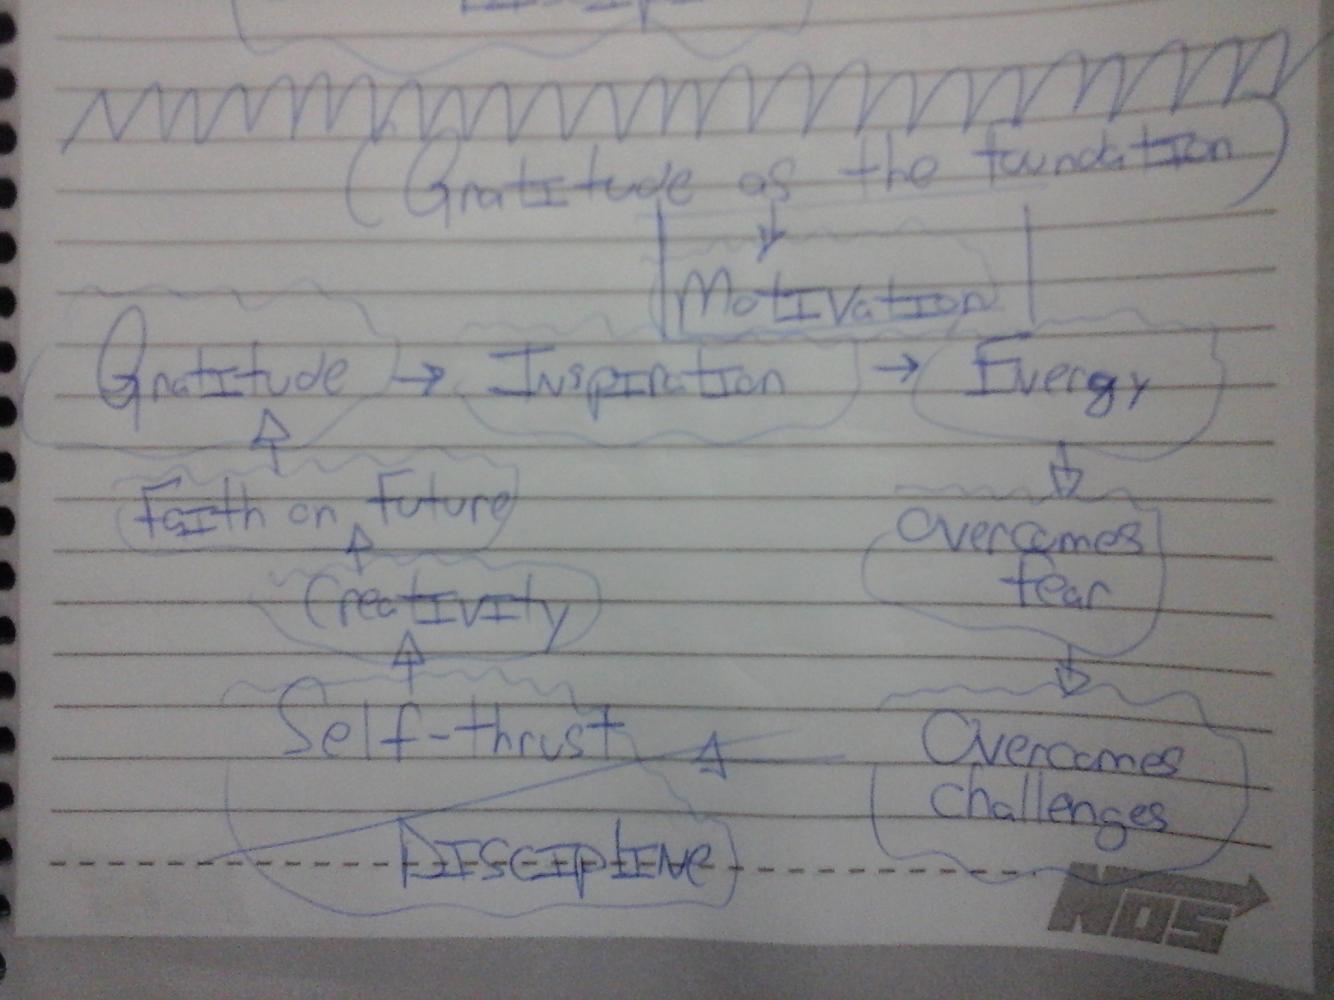 (Gratitude as the foundation)
Motivation
Gratitude → Inspiration → Energy
Faith on Future
overcames
fear
Creativity
Self-thrust
Overcames
challenges
Discipline
NOS